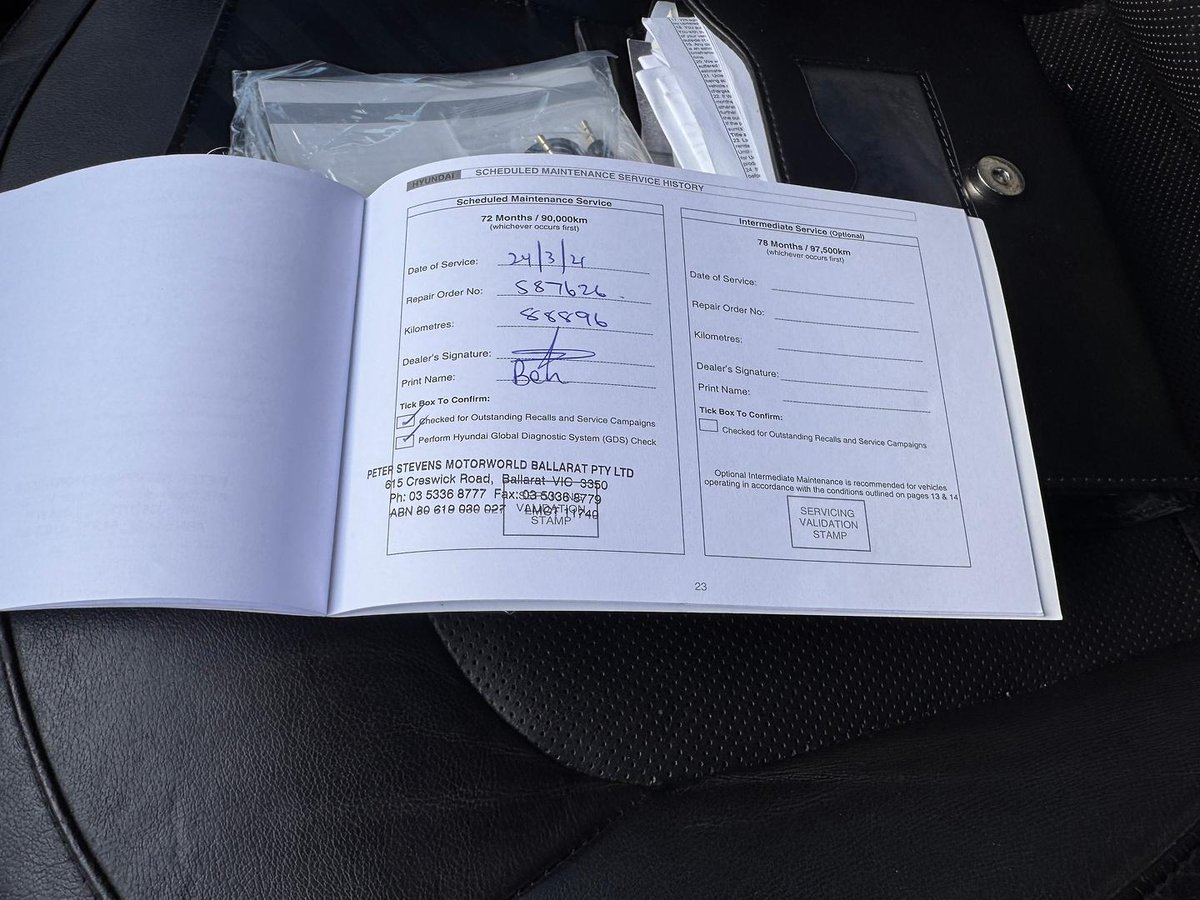 HYUNDAI SCHEDULED MAINTENANCE SERVICE HISTORY
Scheduled Maintenance Service
72 Months / 90,000km
(whichever occurs first)
Date of Service: 24/3/21
Repair Order No: 587626
Kilometres: 88896
Dealer's Signature:
Print Name: Ben
Tick Box To Confirm:
Checked for Outstanding Recalls and Service Campaigns
Perform Hyundai Global Diagnostic System (GDS) Check
PETER STEVENS MOTORWORLD BALLARAT PTY LTD
615 Creswick Road, Ballarat VIC 3350
Ph: 03 5336 8777 Fax: 03 5336 8779
ABN 80 619 030 027 LMCT 11740
VALIDATION
STAMP
Intermediate Service (Optional)
78 Months / 97,500km
(whichever occurs first)
Date of Service:
Repair Order No:
Kilometres:
Dealer's Signature:
Print Name:
Tick Box To Confirm:
Checked for Outstanding Recalls and Service Campaigns
Optional Intermediate Maintenance is recommended for vehicles
operating in accordance with the conditions outlined on pages 13 & 14
SERVICING
VALIDATION
STAMP
23